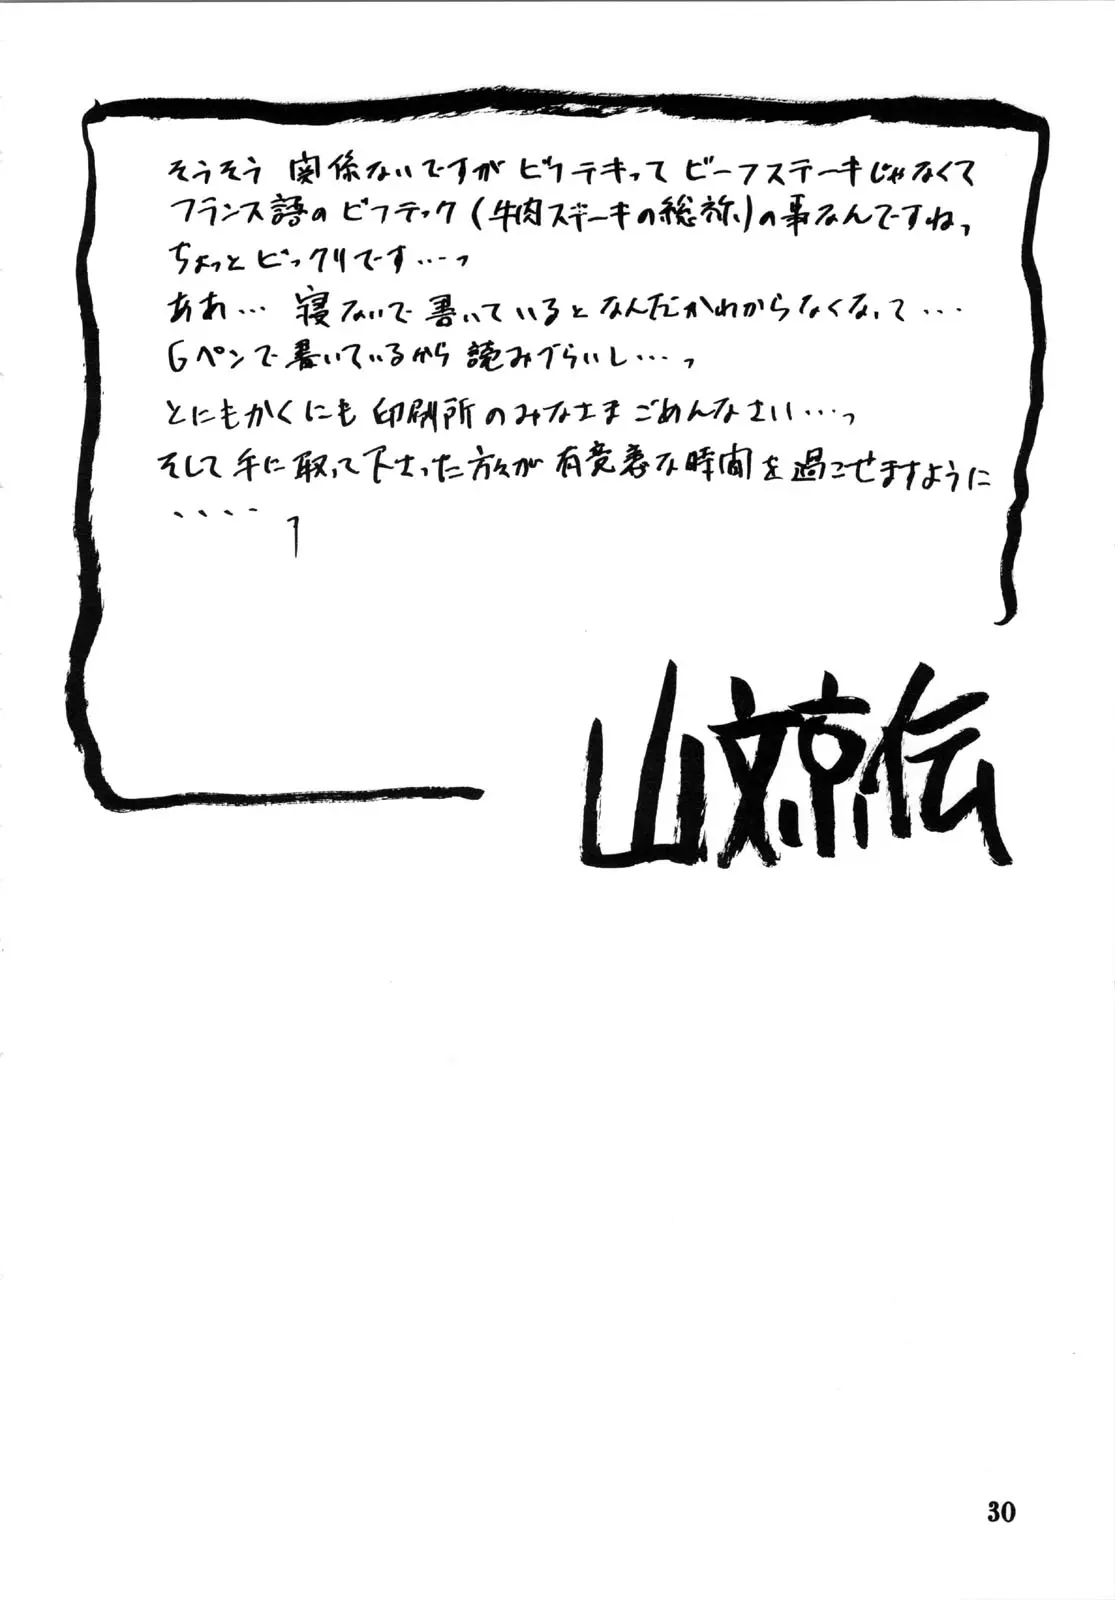 そうそう 関係ないですが ビフテキって ビーフステーキじゃなくて
フランス語の ビフテック (牛肉ステーキの総称)の事なんですねっ
ちょっと ビックリです…っ
ああ… 寝ないで 書いていると なんだかわからなくなって…
Gペンで書いているから 読みづらいし…っ
とにもかくにも 印刷所のみなさま ごめんなさい…っ
そして 手に取って下さった方々が 有意義な時間を過ごせますように
....
山文京伝
30